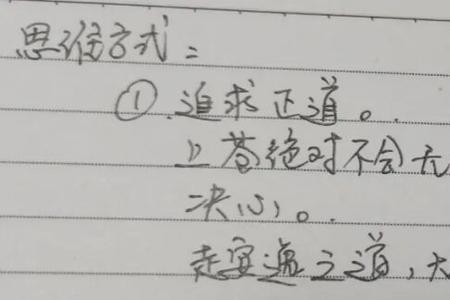 思维方式：
①.追求正道。
上苍绝对不会无
决心。
走宽遍之道，大